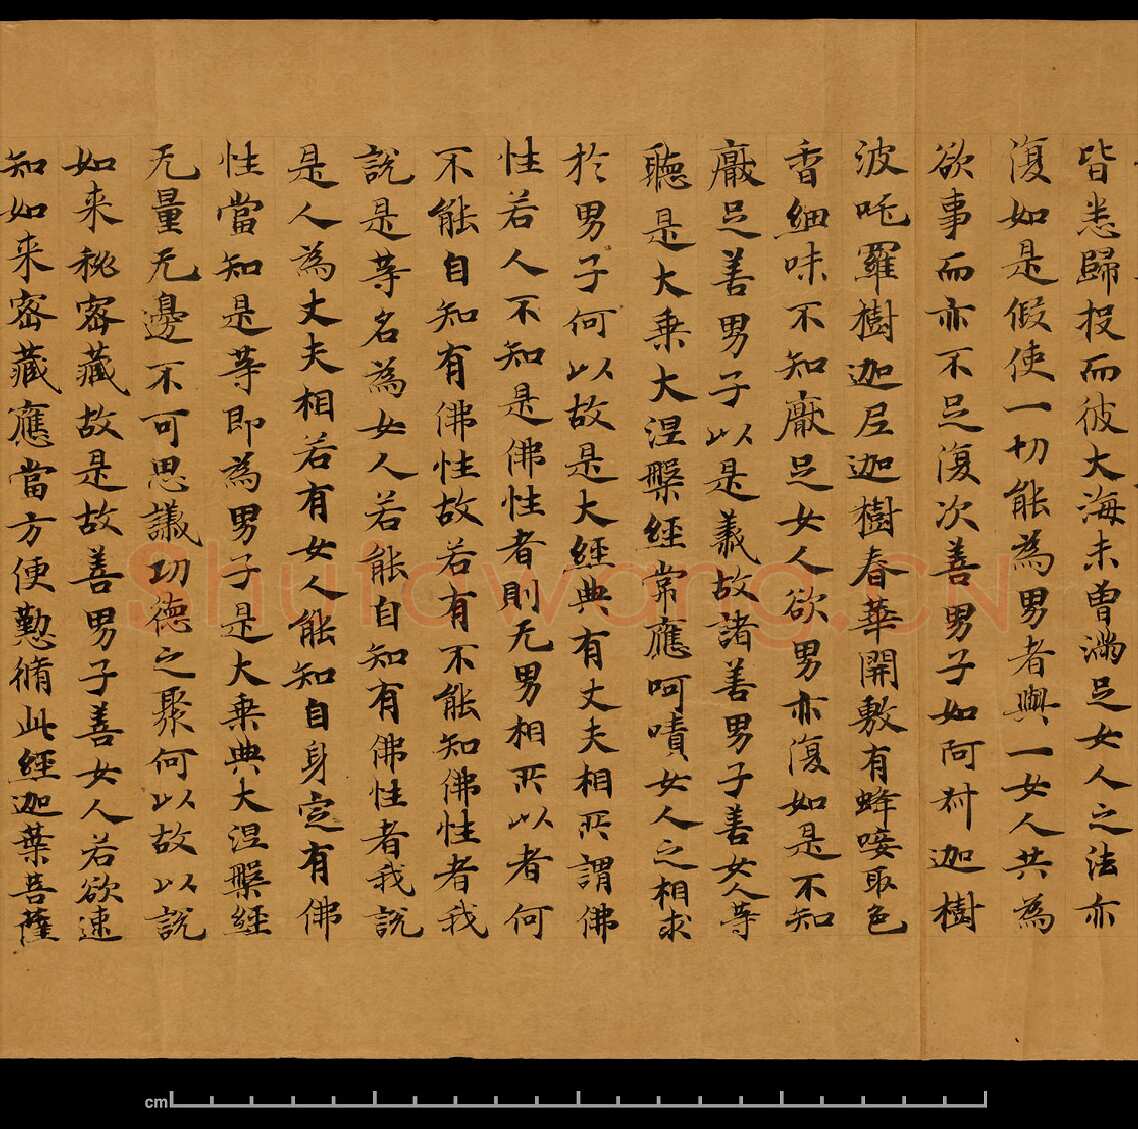 皆悉歸投而彼大海未曾滿足女人之法亦
復如是假使一切能為男者與一女人共為
欲事而亦不足復次善男子如阿𣏌迦樹
波吒羅樹迦尼迦樹春華開敷有蜂唼取色
香細味不知厭足女人欲男亦復如是不知
厭足善男子以是義故諸善男子善女人等
聽是大乘大涅槃經常應呵嘖女人之相求
於男子何以故是大經典有丈夫相所謂佛
性若人不知是佛性者則无男相所以者何
不能自知有佛性故若有不能知佛性者我
說是等名為女人若能自知有佛性者我說
是人為丈夫相若有女人能知自身定有佛
性當知是等即為男子是大乘典大涅槃經
无量无邊不可思議功德之聚何以故以說
如来秘密藏故是故善男子善女人若欲速
知如来密藏應當方便懃脩此經迦葉菩薩
Shufawang.CN
cm